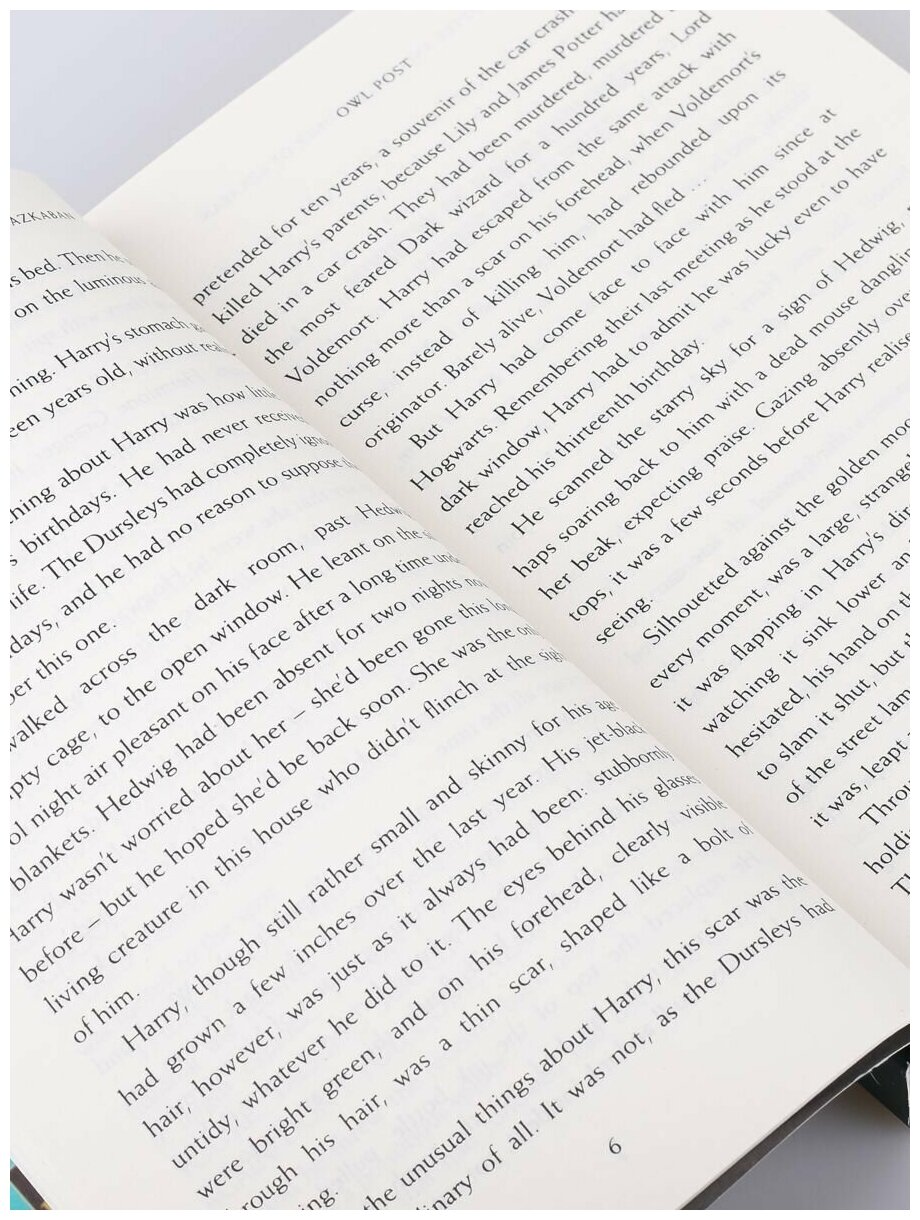 AZKABAN
bed. Then he
on the luminous
Harry's stomach
years old, without
about Harry was how little
birthdays. He had never
life. The Dursleys had completely
and he had no reason to suppose
this one.
walked across the dark room, past
cage, to the open window. He leant on the
night air pleasant on his face after a long time
blankets. Hedwig had been absent for two nights
wasn't worried about her – she'd been gone this
before – but he hoped she'd be back soon. She was the
living creature in this house who didn't flinch at the
of him.
Harry, though still rather small and skinny for his
had grown a few inches over the last year. His jet-black
hair, however, was just as it always had been: stubbornly
untidy, whatever he did to it. The eyes behind his
were bright green, and on his forehead, clearly visible
through his hair, was a thin scar, shaped like a bolt of
the unusual things about Harry, this scar was the
of all. It was not, as the Dursleys had
6
OWL POST
pretended for ten years, a souvenir of the car crash
killed Harry's parents, because Lily and James Potter
died in a car crash. They had been murdered, murdered
the most feared Dark wizard for a hundred years, Lord
Voldemort. Harry had escaped from the same attack with
nothing more than a scar on his forehead, when Voldemort's
curse, instead of killing him, had rebounded upon its
originator. Barely alive, Voldemort had fled ...
But Harry had come face to face with him since at
Hogwarts. Remembering their last meeting as he stood at the
dark window, Harry had to admit he was lucky even to have
reached his thirteenth birthday.
He scanned the starry sky for a sign of Hedwig,
haps soaring back to him with a dead mouse
her beak, expecting praise. Gazing absently
tops, it was a few seconds before Harry
seeing.
Silhouetted against the golden
every moment, was a large,
it was flapping in Harry's
watching it sink lower
hesitated, his hand on
to slam it shut, but
of the street
it was, leapt